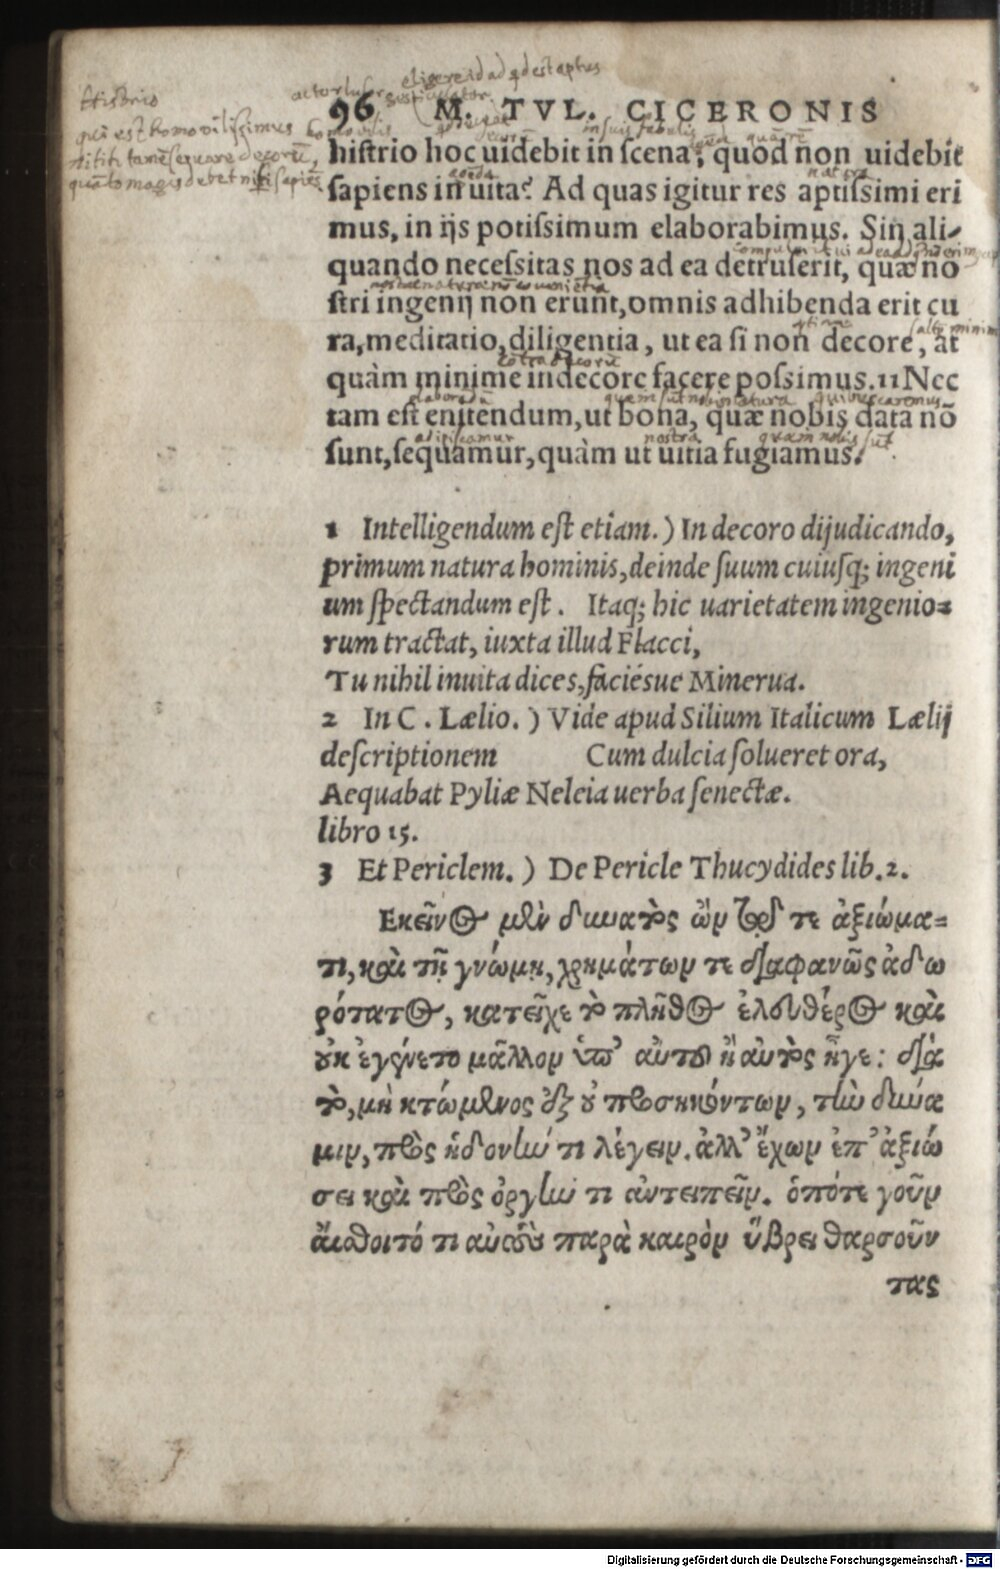 Histrio
qui est homo vilissimus
quāto magis debet sapiēs
eligere id ad qd est aptus
96 M. TVL. CICERONIS
hiſtrio hoc uidebit in ſcena, quod non uidebit
ſapiens in uita? Ad quas igitur res aptiſsimi eri
mus, in ijs potiſsimum elaborabimus. Sin ali-
quando neceſsitas nos ad ea detruſerit, quæ no
ſtri ingenij non erunt, omnis adhibenda erit cu
ra, meditatio, diligentia, ut ea ſi non decore, at
quàm minime indecore facere poſsimus. 11 Nec
tam eſt enitendum, ut bona, quæ nobis data nō
ſunt, ſequamur, quàm ut uitia fugiamus.
1 Intelligendum eſt etiam.) In decoro dijudicando,
primum natura hominis, deinde ſuum cuiuſq; ingeni
um ſpectandum eſt. Itaq; hic uarietatem ingenio-
rum tractat, iuxta illud Flacci,
Tu nihil inuita dices, faciésue Minerua.
2 In C. Lælio.) Vide apud Silium Italicum Lælij
deſcriptionem Cum dulcia ſolueret ora,
Aequabat Pyliæ Neleia uerba ſenectæ.
libro 15.
3 Et Periclem.) De Pericle Thucydides lib. 2.
Εκεῖνος μὲν δυνατὸς ὢν τῷ τε ἀξιώμα-
τι, καὶ τῇ γνώμῃ, χρημάτων τε διαφανῶς ἀδω
ρότατος, κατεῖχε τὸ πλῆθος ἐλευθέρως καὶ
οὐκ ἐγένετο μᾶλλον ὑπ' αὐτοῦ ἢ αὐτὸς ἦγε: διὰ
τὸ, μὴ κτώμενος ἐξ οὐ προσηκόντων, τὴν δύνα
μιν, πρὸς ἡδονὴν τι λέγειν. ἀλλ' ἔχων ἐπ' ἀξιώ
σει καὶ πρὸς ὀργὴν τι ἀντειπεῖν. ὁπότε γοῦν
αἴσθοιτό τι αὐτοὺς παρὰ καιρὸν ὕβρει θαρσοῦν
τας
Digitalisierung gefördert durch die Deutsche Forschungsgemeinschaft - DFG